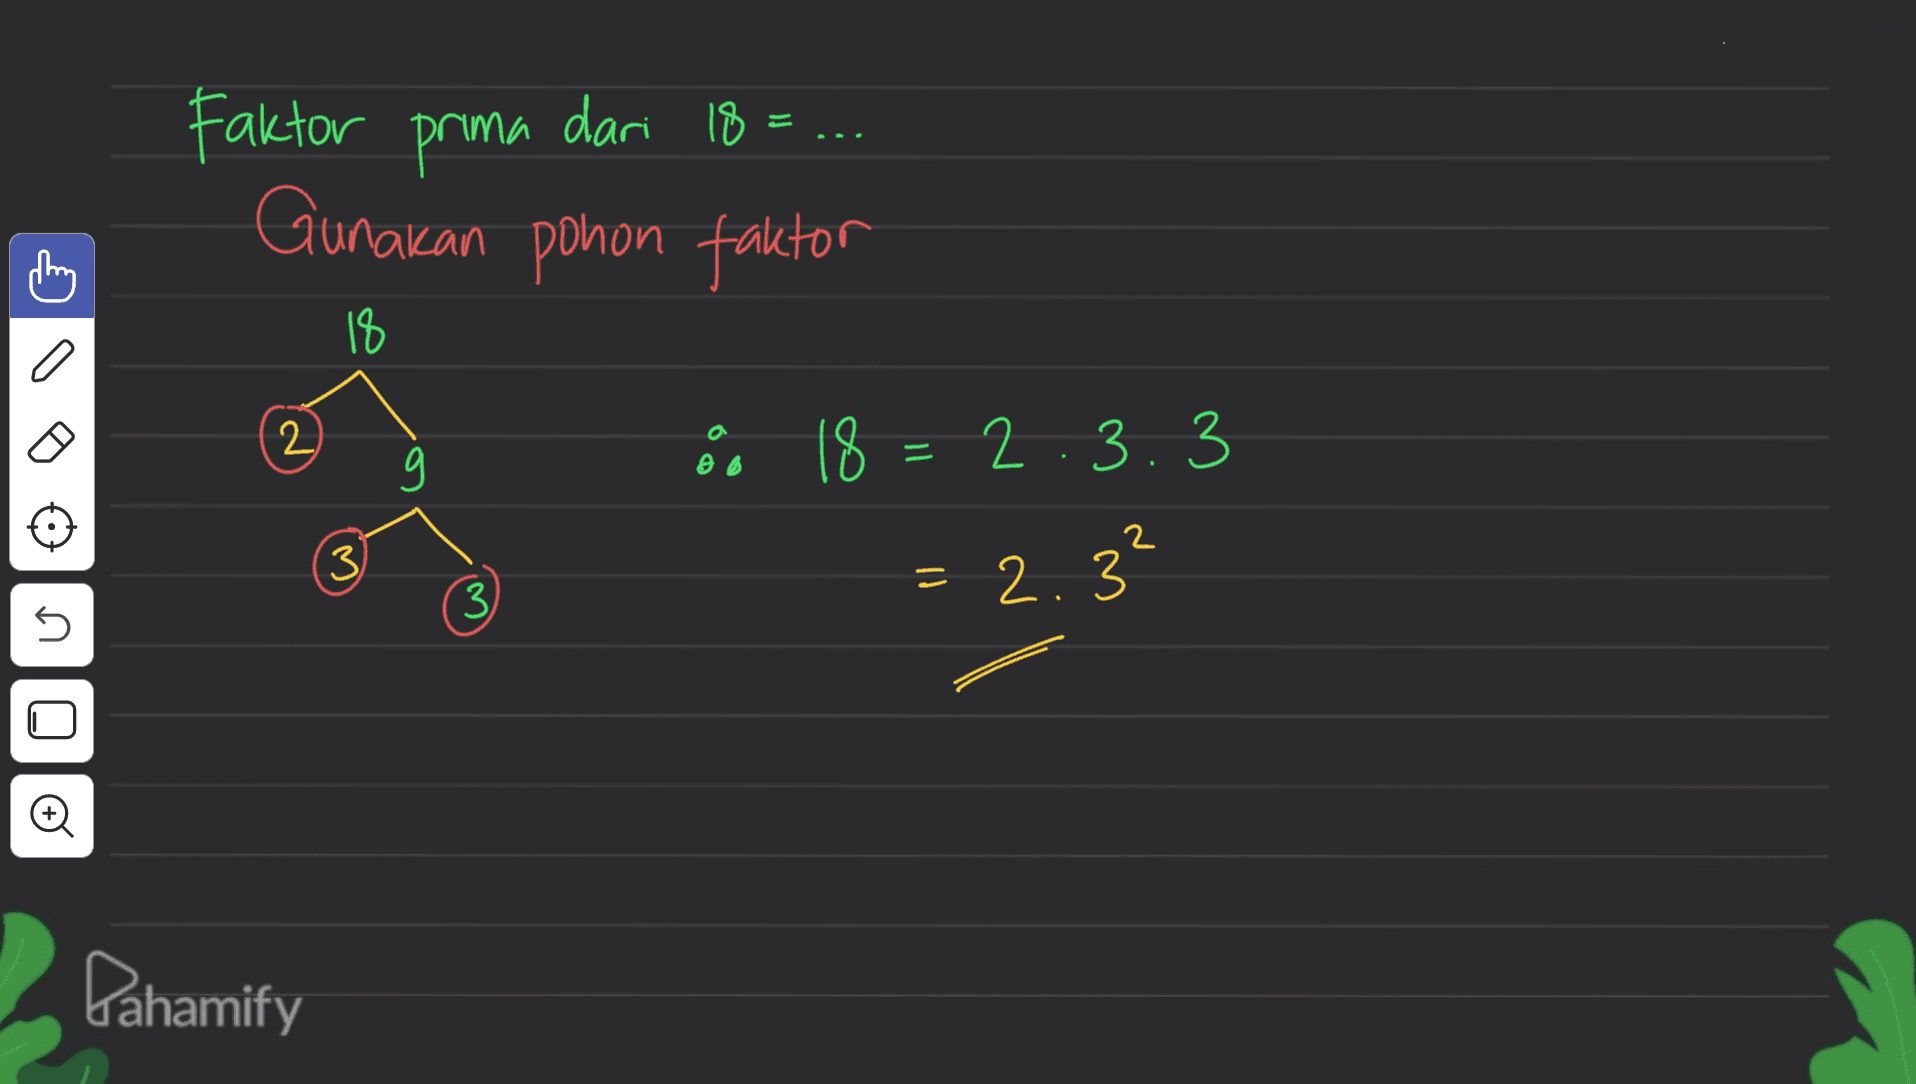 Faktor prima dari 18 = ...
Gunakan pohon faktor
18
2
9
3
3
∴ 18 = 2 . 3 . 3
= 2 . 3²
Pahamify